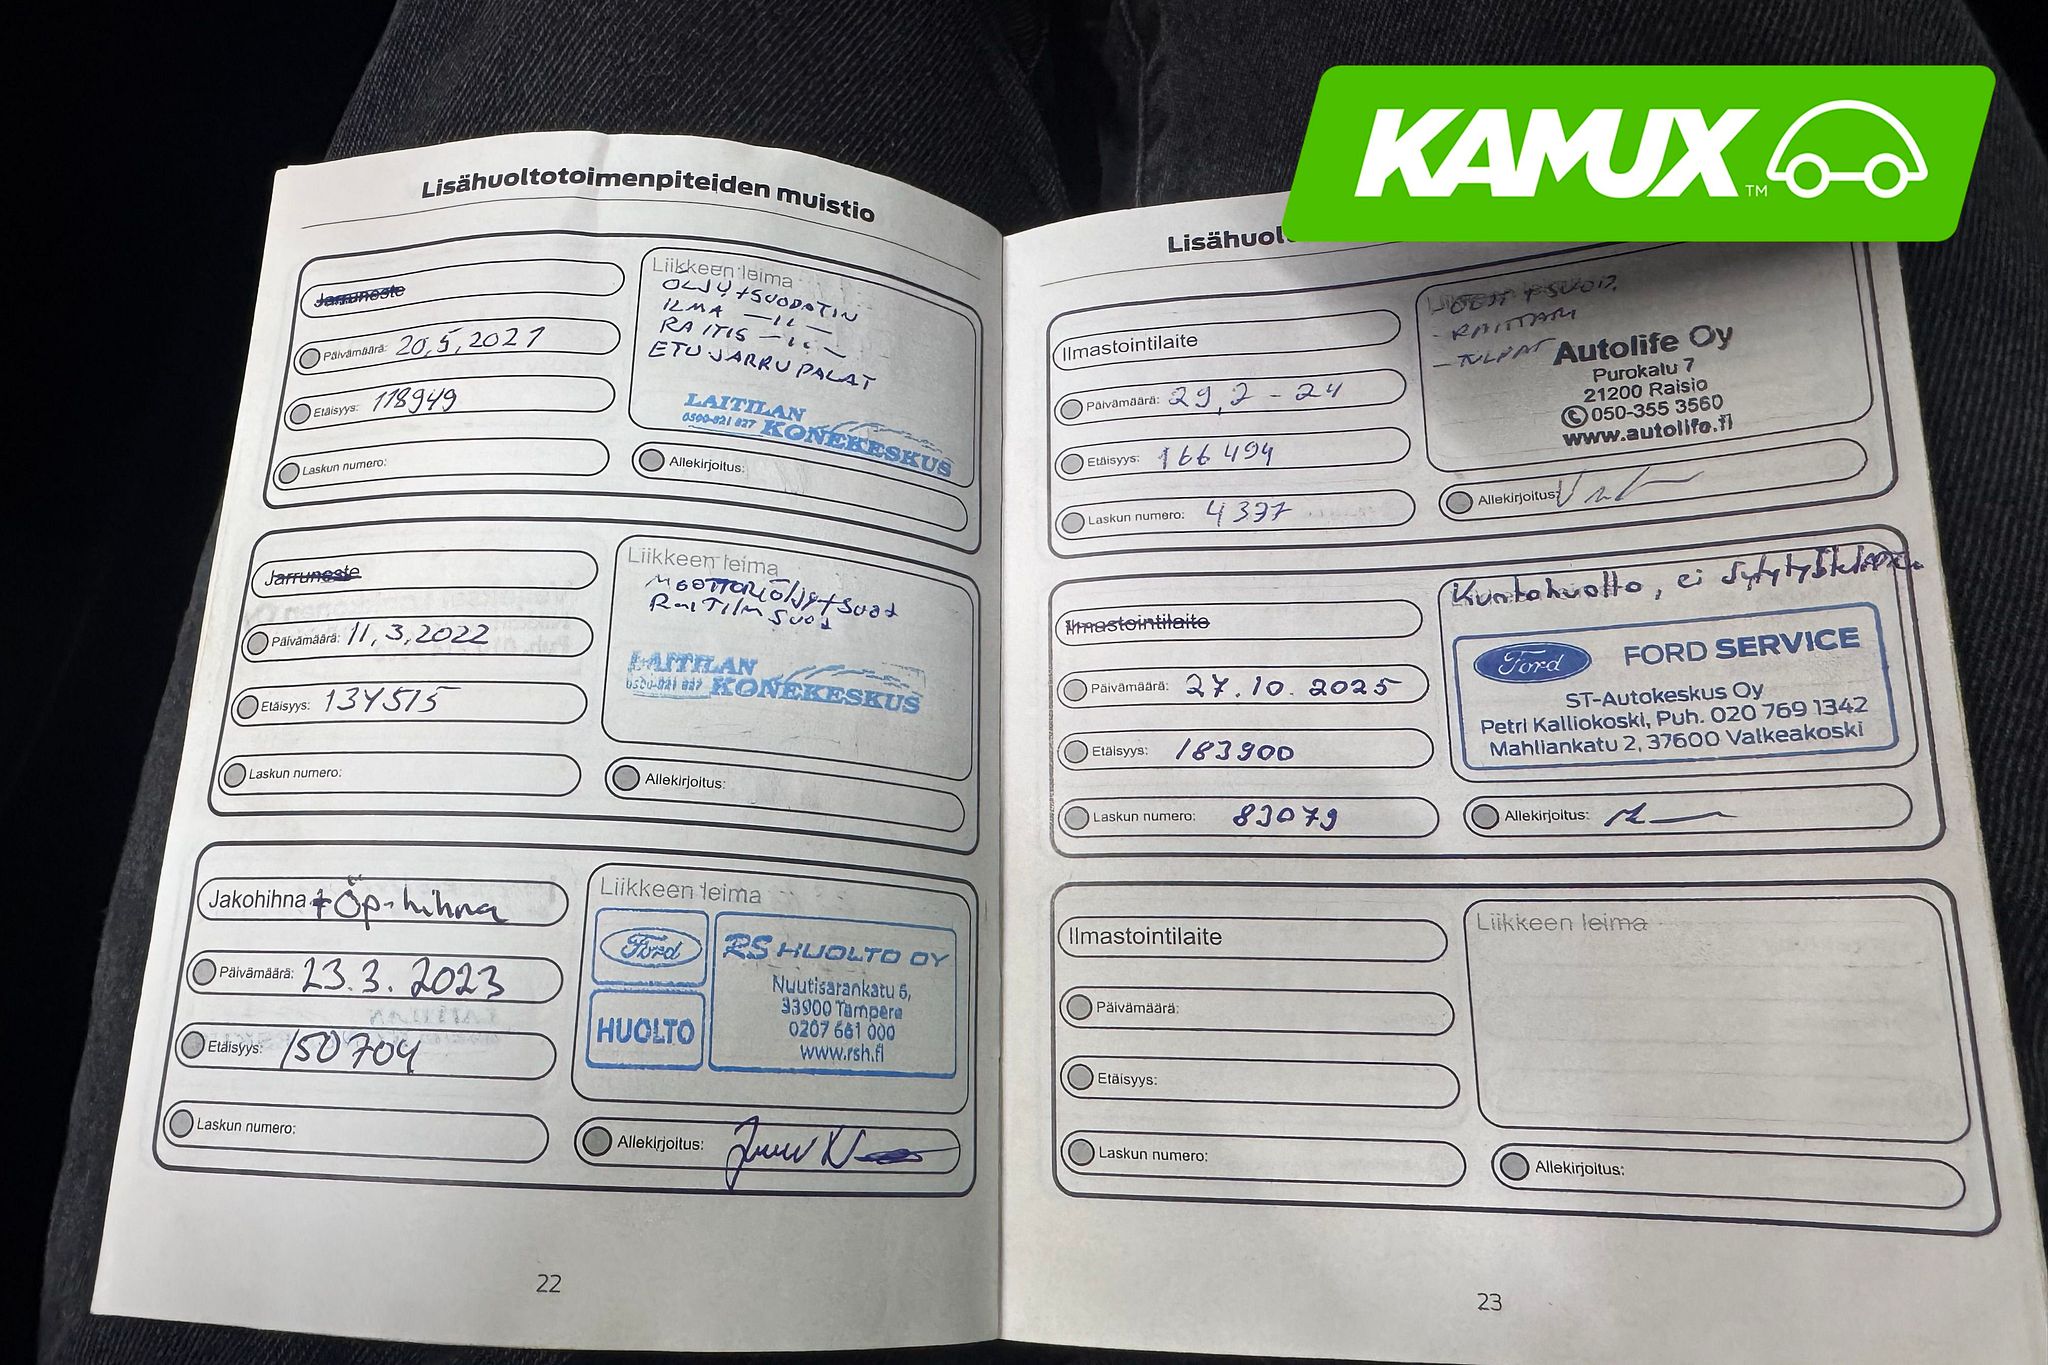 KAMUX™
Lisähuoltotoimenpiteiden muistio
Jarruneste
Päivämäärä: 20,5,2021
Etäisyys: 118949
Laskun numero:
Liikkeen leima
ÖLJY+SUODATIN
ILMA —11—
RAITIS —11—
ETUJARRUPALAT
LAITILAN
0500-821 827 KONEKESKUS
Allekirjoitus:
Jarruneste
Päivämäärä: 11,3,2022
Etäisyys: 134515
Laskun numero:
Liikkeen leima
MOOTTORIÖLJY+SUOD
LAITILAN
0500-821 827 KONEKESKUS
Allekirjoitus:
Jakohihna + Öp-hihna
Päivämäärä: 23.3.2023
Etäisyys: 150704
Laskun numero:
Liikkeen leima
Ford
HUOLTO
RS HUOLTO OY
Nuutisarankatu 6,
33900 Tampere
0207 661 000
www.rsh.fi
Allekirjoitus:
22
Ilmastointilaite
Päivämäärä: 29,2-24
Etäisyys: 166494
Laskun numero: 4397
- TULPAT
Autolife Oy
Purokatu 7
21200 Raisio
050-355 3560
www.autolife.fi
Allekirjoitus:
Ilmastointilaite
Päivämäärä: 27.10.2025
Etäisyys: 183900
Laskun numero: 83079
Kuntohuolto, ei
Ford
FORD SERVICE
ST-Autokeskus Oy
Petri Kalliokoski, Puh. 020 769 1342
Mahliankatu 2, 37600 Valkeakoski
Allekirjoitus:
Ilmastointilaite
Päivämäärä:
Etäisyys:
Laskun numero:
Liikkeen leima
Allekirjoitus:
23